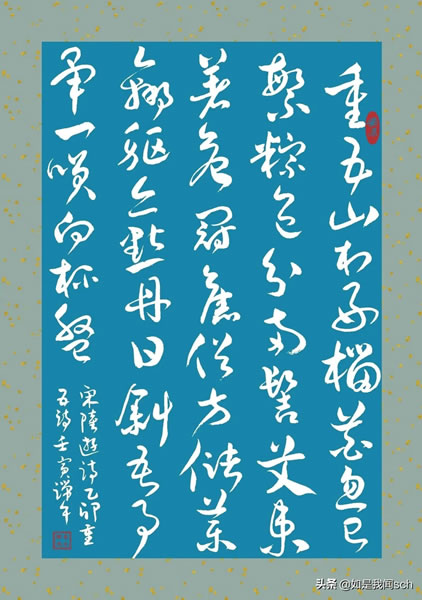 重五山村好榴花忽已
繁粽包分两髻艾束
著危冠舊俗方儲藥
羸軀亦點丹日斜吾事
畢一笑向杯盤
宋陸遊詩乙卯重
五詩壬寅端午
头条 @如是我闻sch